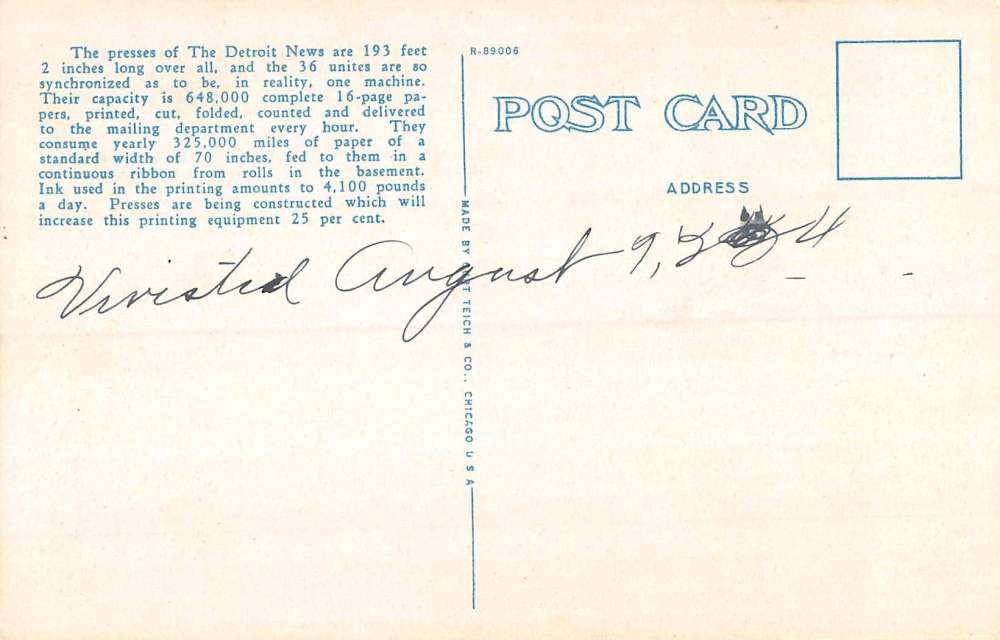 The presses of The Detroit News are 193 feet
2 inches long over all, and the 36 unites are so
synchronized as to be, in reality, one machine.
Their capacity is 648,000 complete 16-page pa-
pers, printed, cut, folded, counted and delivered
to the mailing department every hour. They
consume yearly 325,000 miles of paper of a
standard width of 70 inches, fed to them in a
continuous ribbon from rolls in the basement.
Ink used in the printing amounts to 4,100 pounds
a day. Presses are being constructed which will
increase this printing equipment 25 per cent.
R-89006
POST CARD
ADDRESS
MADE BY CURT TEICH & CO., CHICAGO U S A
August 9,